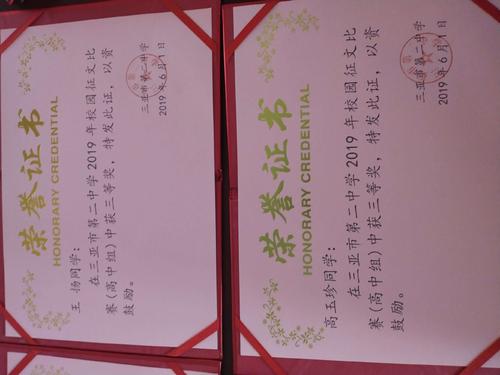 荣誉证书
HONORARY CREDENTIAL
王 扬同学：
在三亚市第二中学2019年校园征文比
赛(高中组)中获三等奖，特发此证，以资
鼓励。
三亚市第二中学
2019年6月1日
荣誉证书
HONORARY CREDENTIAL
高玉珍同学：
在三亚市第二中学2019年校园征文比
赛(高中组)中获三等奖，特发此证，以资
鼓励。
三亚市第二中学
2019年6月1日